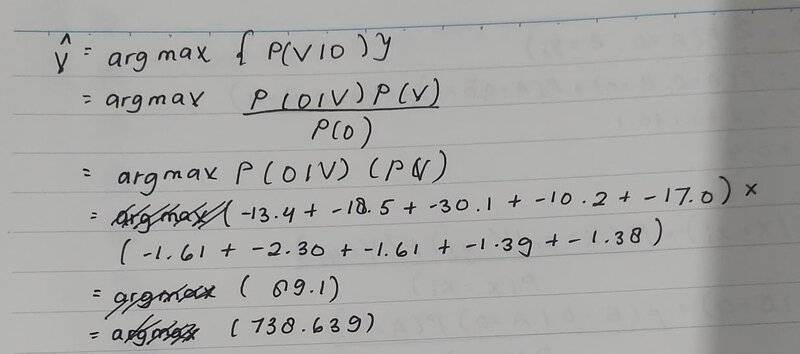 V̂ = arg max { P(V|O) }
= argmax P(O|V) P(V) / P(O)
= argmax P(O|V) (P(V)
= argmax (-13.4 + -18.5 + -30.1 + -10.2 + -17.0) ×
(-1.61 + -2.30 + -1.61 + -1.39 + -1.38)
= argmax ( 89.1)
= argmax (738.639)